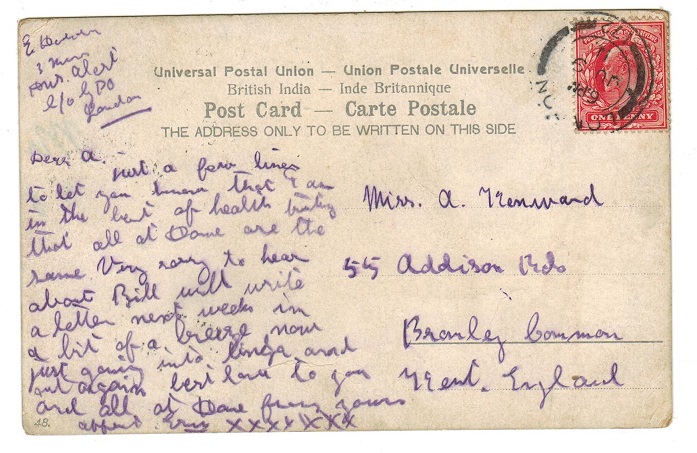 3 mess
H.M.S. Alert
c/o G P O
London
Universal Postal Union — Union Postale Universelle
British India — Inde Britannique
Post Card — Carte Postale
THE ADDRESS ONLY TO BE WRITTEN ON THIS SIDE
ONE PENNY
Dear A. just a few lines
to let you know that I am
in the best of health
that all at Home are the
same Very sorry to hear
about Bill will write
a letter next weeks in
a bit of a breeze now
just going into linga and
out again best love to you
and all at Home from yours
affect Ern xxxx xxx
Miss. A.
55 Addison Rds
Bromley Common
Kent. England
48.